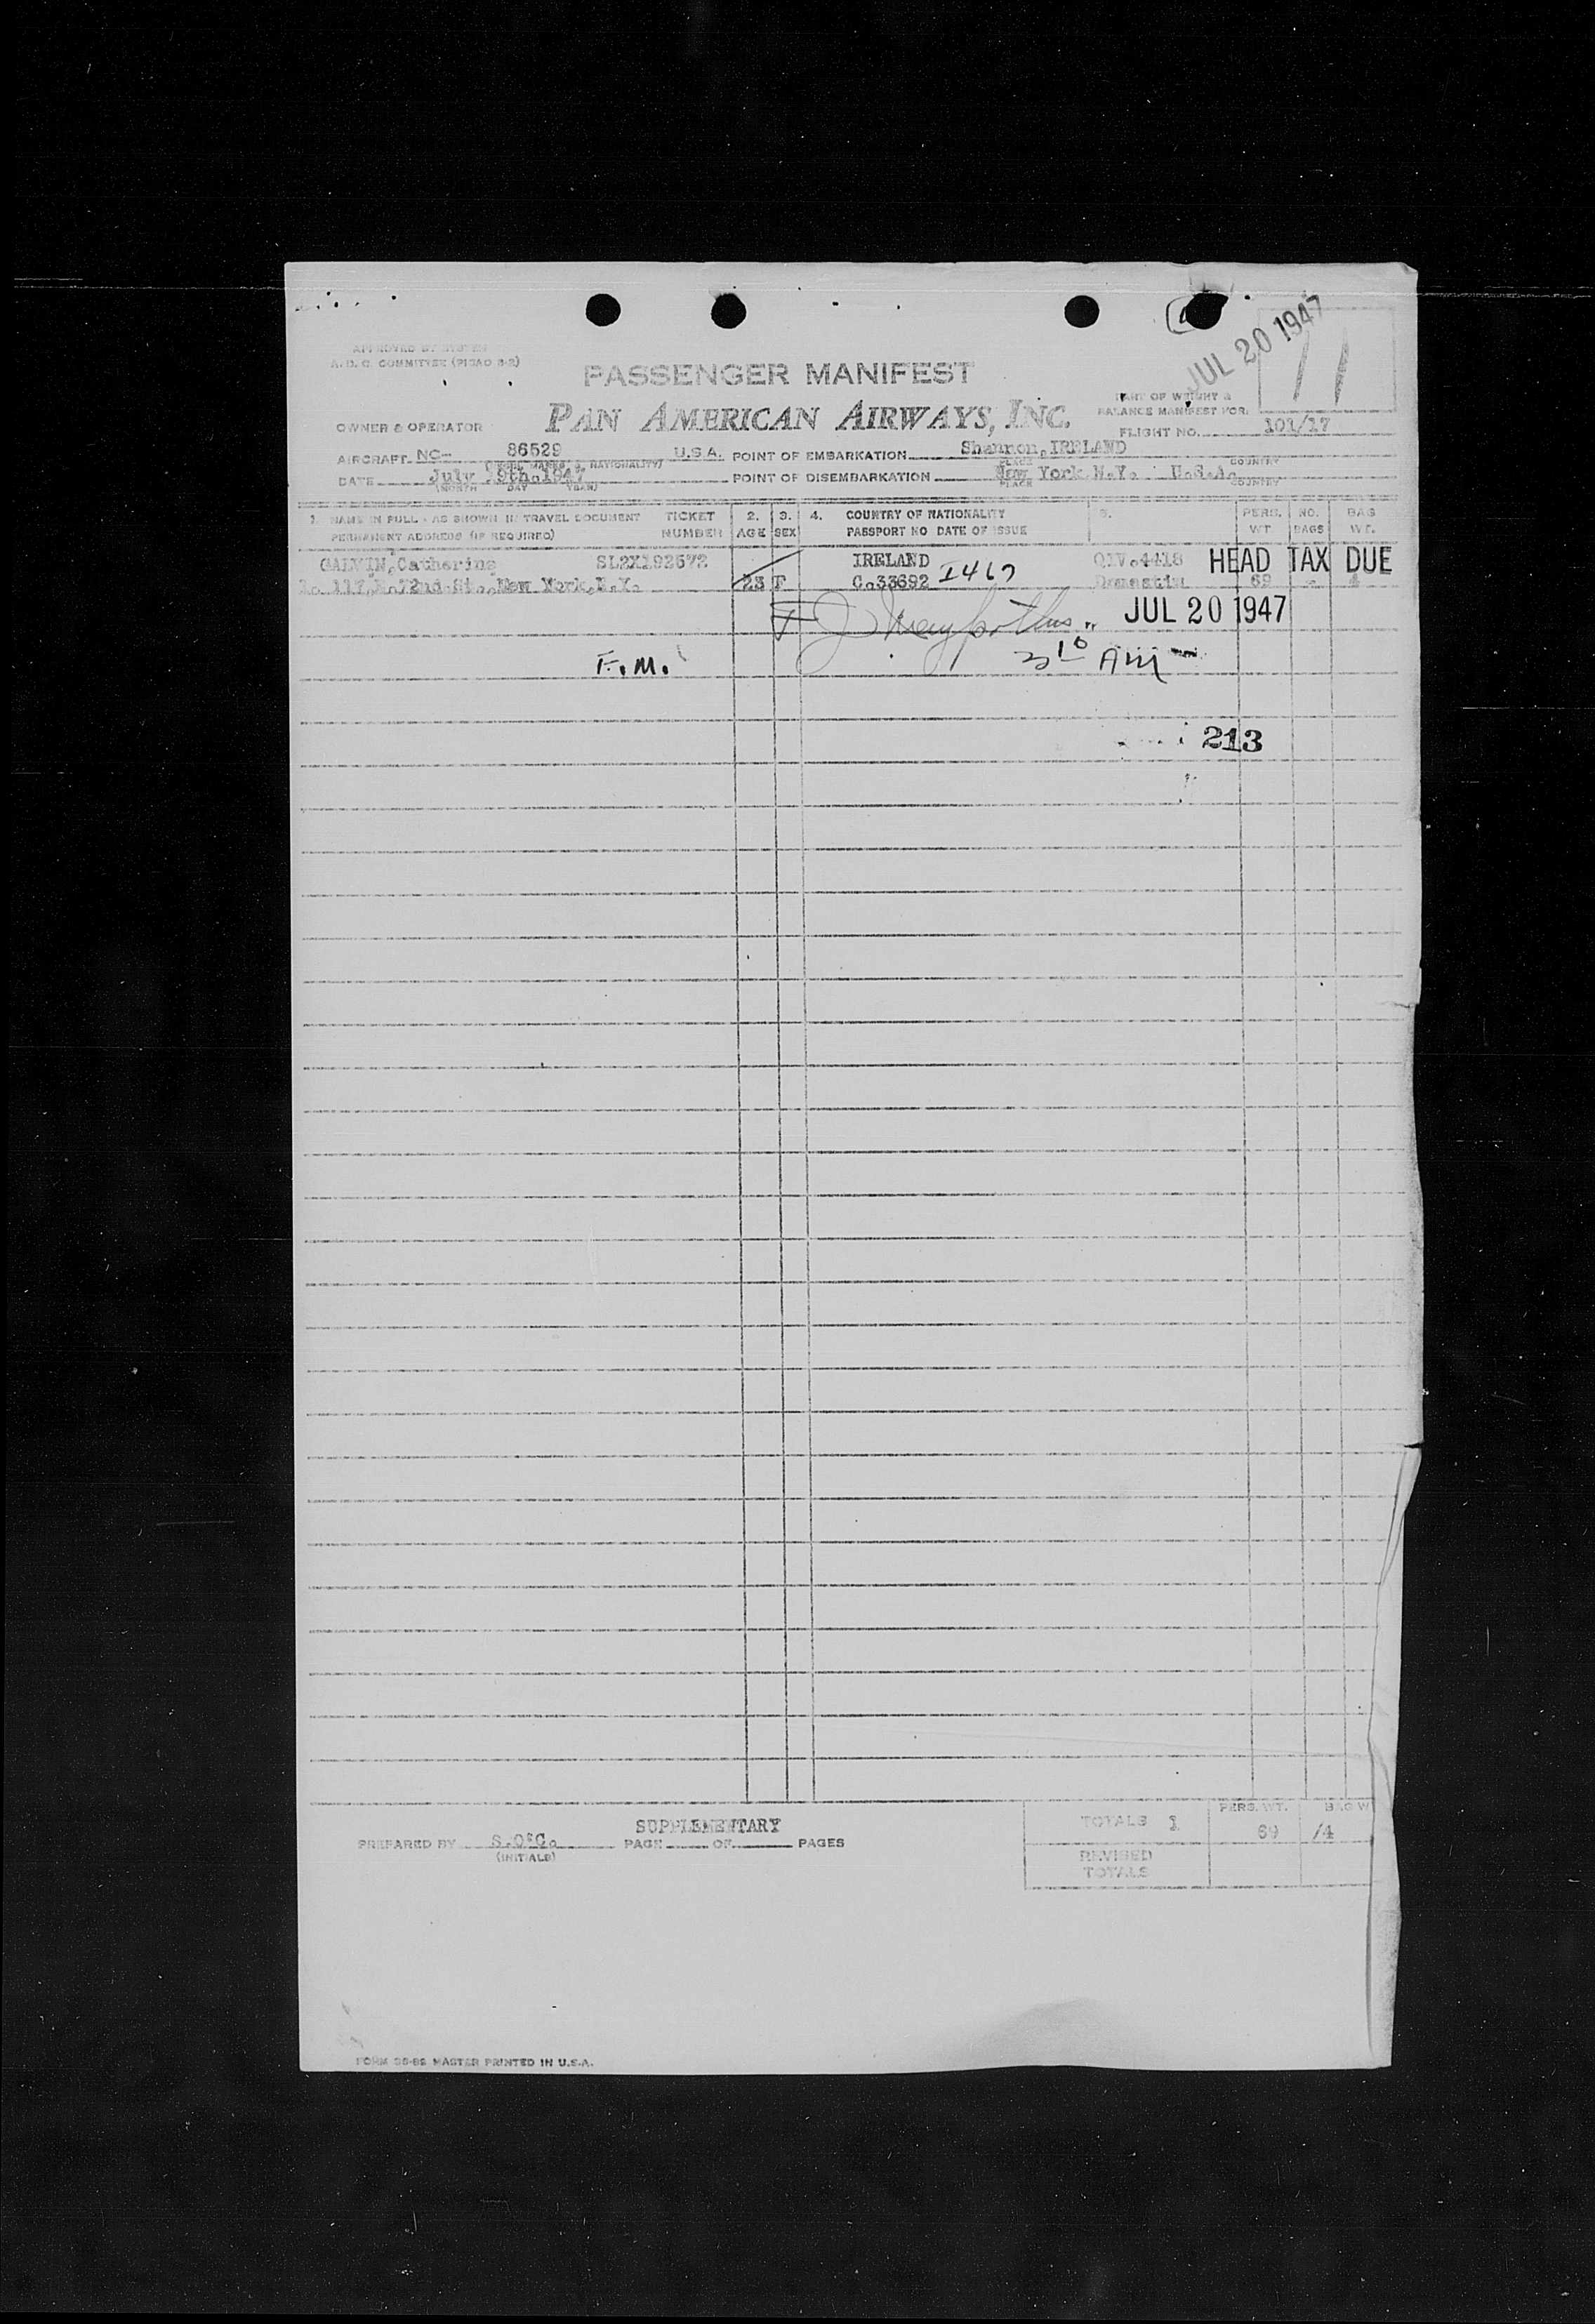 JUL 20 1947
11
APPROVED BY SYSTEM
A. D. C. COMMITTEE (PICAO 8-2)
PASSENGER MANIFEST
PAN AMERICAN AIRWAYS, INC.
PART OF WEIGHT &
BALANCE MANIFEST FOR:
OWNER & OPERATOR
FLIGHT NO. 101/17
AIRCRAFT NC- 86529 U.S.A. POINT OF EMBARKATION Shannon, IRELAND
NATIONALITY) PLACE COUNTRY
DATE July 9th. 1947 POINT OF DISEMBARKATION New York, N.Y. U.S.A.
(MONTH DAY YEAR) PLACE COUNTRY
1. NAME IN FULL - AS SHOWN IN TRAVEL DOCUMENT TICKET 2. 3. 4. COUNTRY OF NATIONALITY 5. PERS. NO. BAG
PERMANENT ADDRESS (IF REQUIRED) NUMBER AGE SEX PASSPORT NO DATE OF ISSUE WT. BAGS WT.
GALVIN, Catherine SL2X192672 IRELAND QIV. 4418 HEAD TAX DUE
117, 72nd. St., New York, N.Y. 23 F C.33692 I467 69
JUL 20 1947
F.M. 3 10 AM
213
SUPPLEMENTARY
PREPARED BY S.O'C. PAGE OF PAGES
(INITIALS)
TOTALS 1 PERS. WT. 69 BAG W /4
REVISED
TOTALS
MASTER PRINTED IN U.S.A.